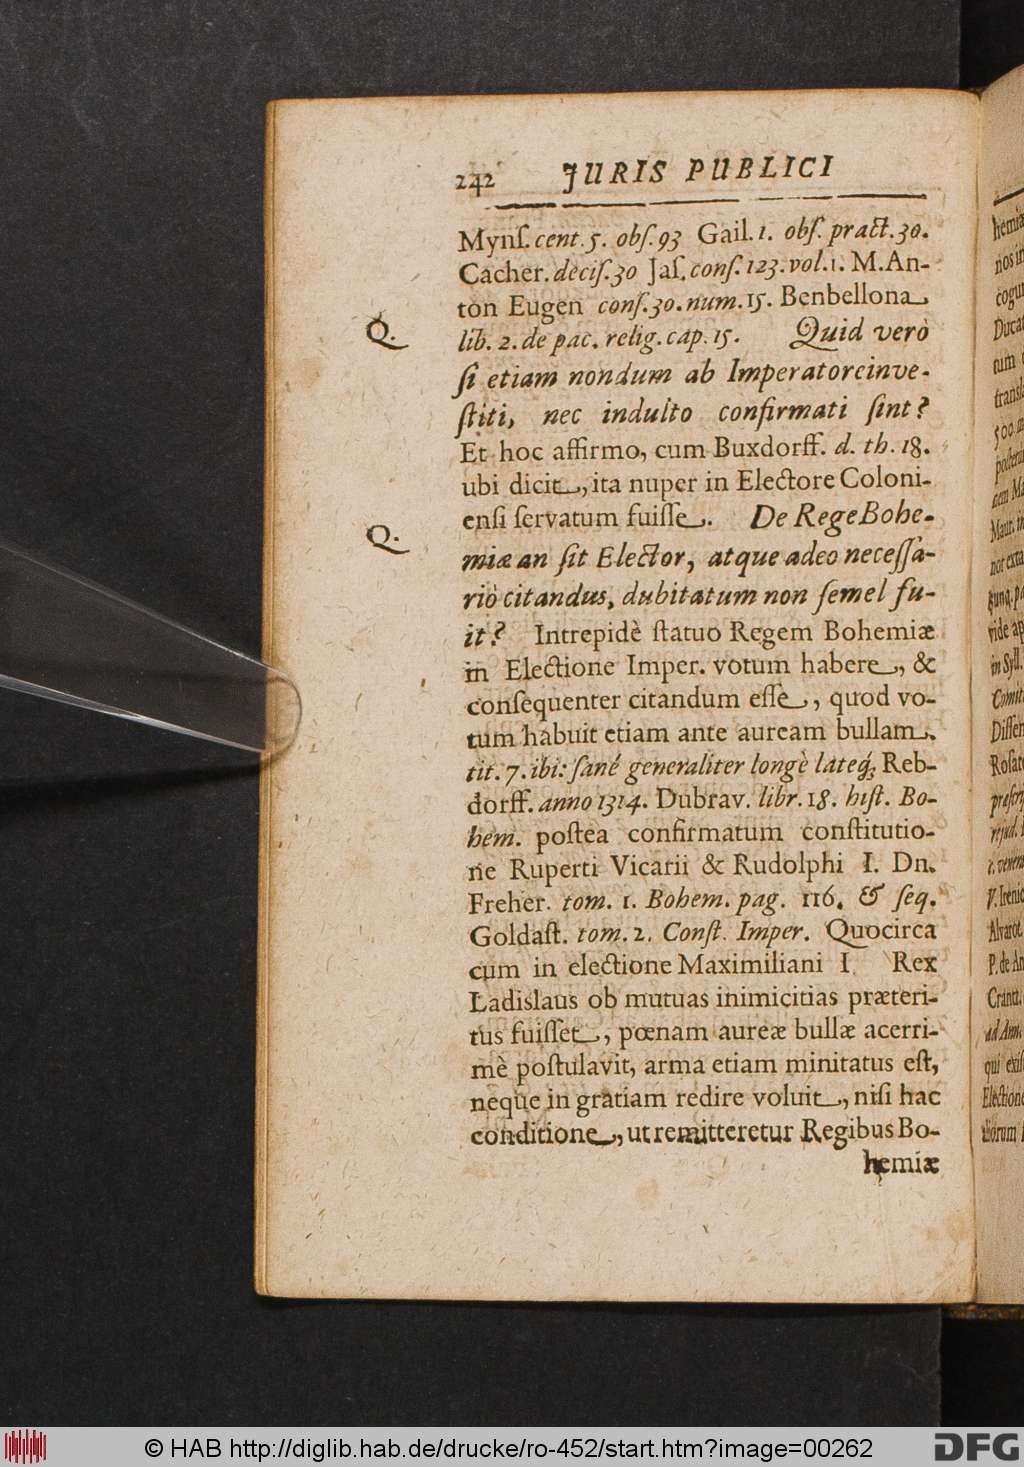 242 JURIS PUBLICI
Mynſ. cent. 5. obſ. 93 Gail. 1. obſ. pract. 30.
Cacher. deciſ. 30 Jaſ. conſ. 123. vol. 1. M. An-
ton Eugen conſ. 30. num. 15. Benbellona
Q. lib. 2. de pac. relig. cap. 15. Quid verò
ſi etiam nondum ab Imperatore inve-
ſtiti, nec indulto confirmati ſint?
Et hoc affirmo, cum Buxdorff. d. th. 18.
ubi dicit, ita nuper in Electore Coloni-
enſi ſervatum fuiſſe. De Rege Bohe-
Q. miæ an ſit Elector, atque adeo neceſſa-
riò citandus, dubitatum non ſemel fu-
it? Intrepidè ſtatuo Regem Bohemiæ
in Electione Imper. votum habere, &
conſequenter citandum eſſe, quod vo-
tum habuit etiam ante auream bullam.
tit. 7. ibi: ſané generaliter longè lateq́; Reb-
dorff. anno 1314. Dubrav. libr. 18. hiſt. Bo-
hem. poſtea confirmatum conſtitutio-
ne Ruperti Vicarii & Rudolphi I. Dn.
Freher. tom. 1. Bohem. pag. 116. & ſeq.
Goldaſt. tom. 2. Conſt. Imper. Quocirca
cum in electione Maximiliani I Rex
Ladislaus ob mutuas inimicitias præteri-
tus fuiſſet, pœnam aureæ bullæ acerri-
mè poſtulavit, arma etiam minitatus eſt,
neque in gratiam redire voluit, niſi hac
conditione, ut remitteretur Regibus Bo-
hemiæ
© HAB http://diglib.hab.de/drucke/ro-452/start.htm?image=00262
DFG